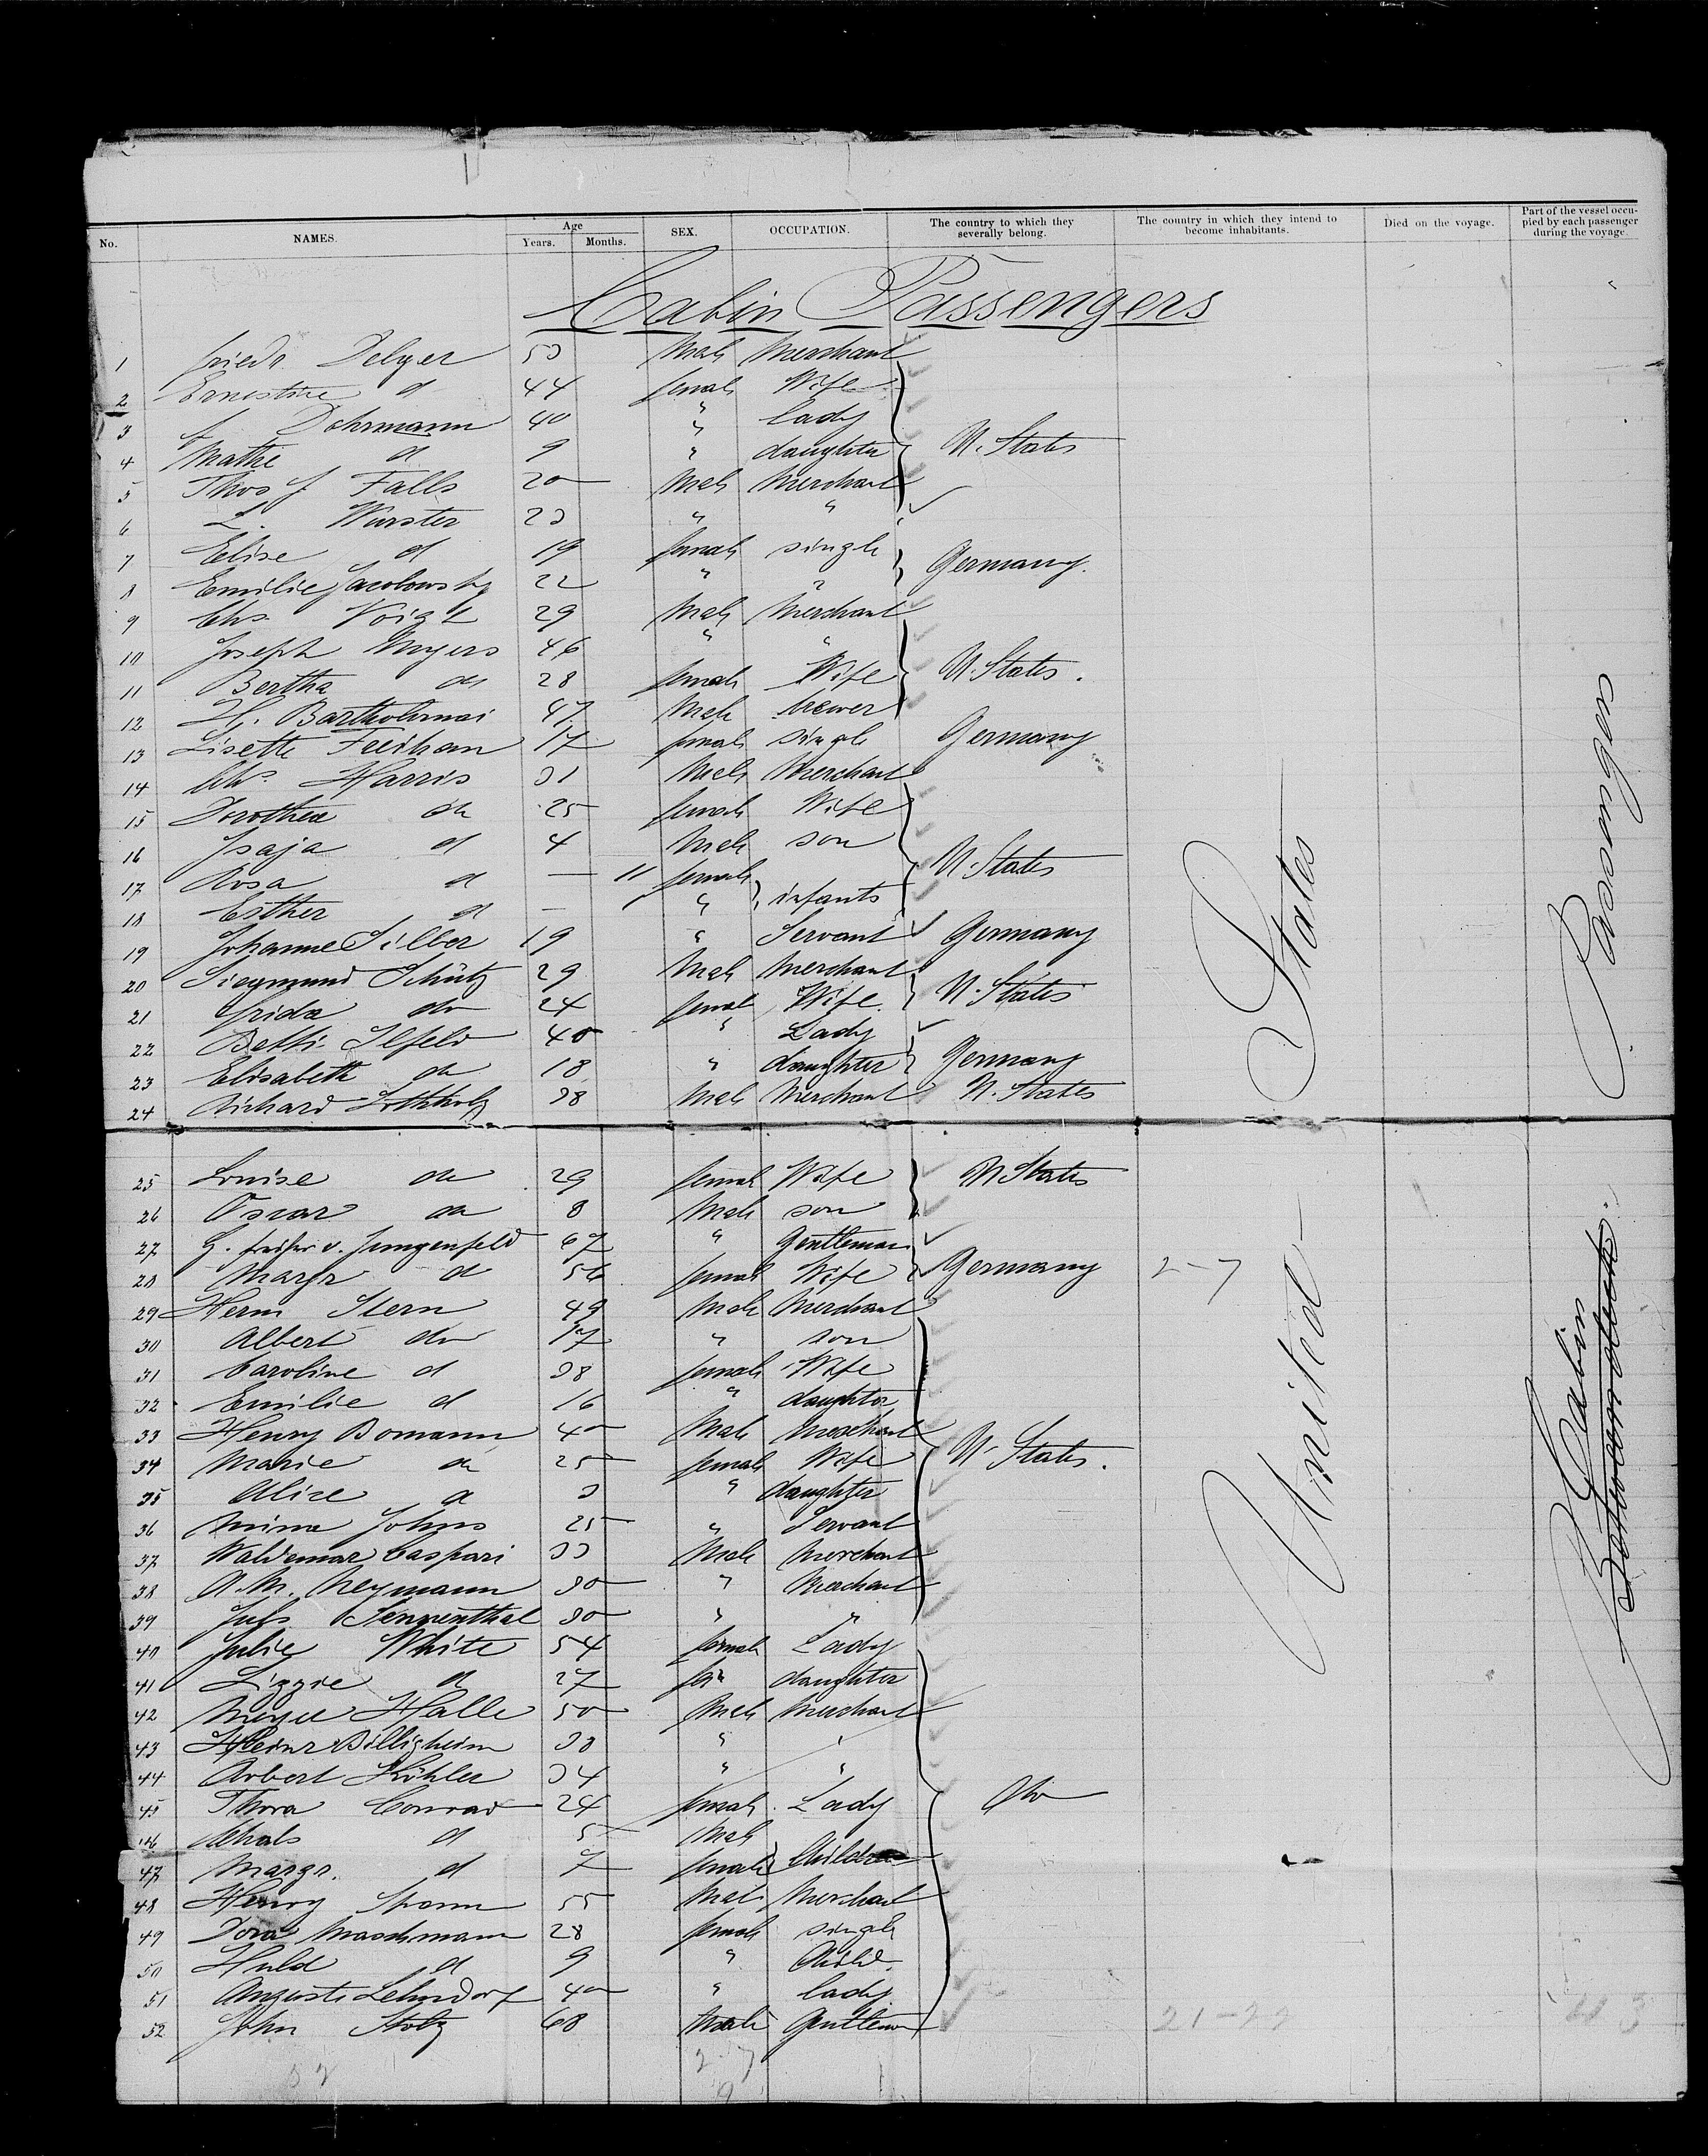 No. NAMES. Age Years. Months. SEX. OCCUPATION. The country to which they severally belong. The country in which they intend to become inhabitants. Died on the voyage. Part of the vessel occupied by each passenger during the voyage
Cabin Passengers
1 Friedr. Delger 53 Male Merchant
2 Ernestine d 44 female Wife
3 Dohrmann 40 " lady
4 Mathe d 9 " daughter U. States
5 Thos J Falls 20 Male Merchant
6 L. Wurster 23 " "
7 Elise d 19 female single Germany.
8 Emilie Jacobowsky 22 " "
9 Chs. Voigt 29 Male Merchant
10 Joseph Meyers 46 " "
11 Bertha do 28 female Wife U. States.
12 H. Bartholomai 47 Male brewer
13 Lisette 17 female single Germany
14 Chs. Harris 31 Male Merchant
15 Dorothea do 25 female Wife
16 Isaja d 4 Male son
17 Rosa d — 11 female U. States
18 Esther d — " infants
19 Johanne Silber 19 " Servant Germany
20 Siegmund Schütz 29 Male Merchant
21 Frida do 24 female Wife U. States
22 Betti Ilfeld 40 " Lady
23 Elisabeth do 18 " daughter Germany
24 Richard 38 Male Merchant U. States
25 Louise do 29 female Wife U States
26 Oscar do 8 Male son
27 G. v. Jungenfeld 67 " Gentleman
28 Margr d 56 female Wife Germany 2-7
29 Herm Stern 49 Male Merchant
30 Albert do 17 " son
31 Caroline d 38 female Wife
32 Emilie d 16 " daughter
33 Henry Bomann 40 Male Merchant
34 Marie do 25 female Wife U. States.
35 Alice d 3 " daughter
36 Mina Johns 25 " Servant
37 Waldemar Caspari 33 Male Merchant
38 A. M. Neymann 30 " Merchant
39 Juls Sennenthal 30 " "
40 Julie White 54 female Lady
41 Lizzie d 27 daughter
42 Meyer Halle 50 Male Merchant
43 Heinr Billigheim 33 " "
44 Robert Köhler 34 " "
45 Thora Conrad 24 female Lady
46 Chals d 5 Male
47 Margr. d 7 female Children
48 Henry Spann 55 Male Merchant
49 Dora Maschmann 28 female single
50 Huld d 9 " Child.
51 Auguste Lehndorf 40 " lady
52 John Stolz 68 Male Gentleman 21-22
United States
Cabin Passengers